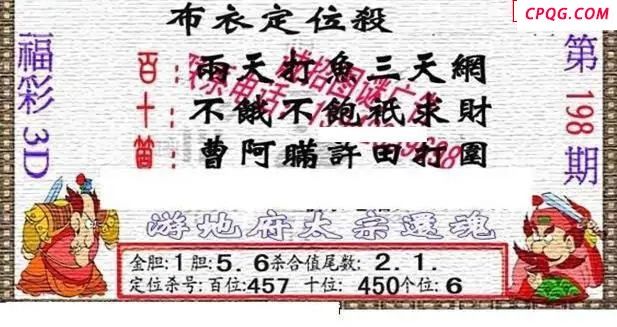 CPQG.COM
布衣定位殺
福彩3D
第198期
百:兩天打魚三天網
十:不餓不飽祇求財
個:曹阿瞞許田打圍
游地府太宗還魂
金胆:1胆:5.6杀合值尾数:2.1.
定位杀号:百位:457 十位:450个位:6